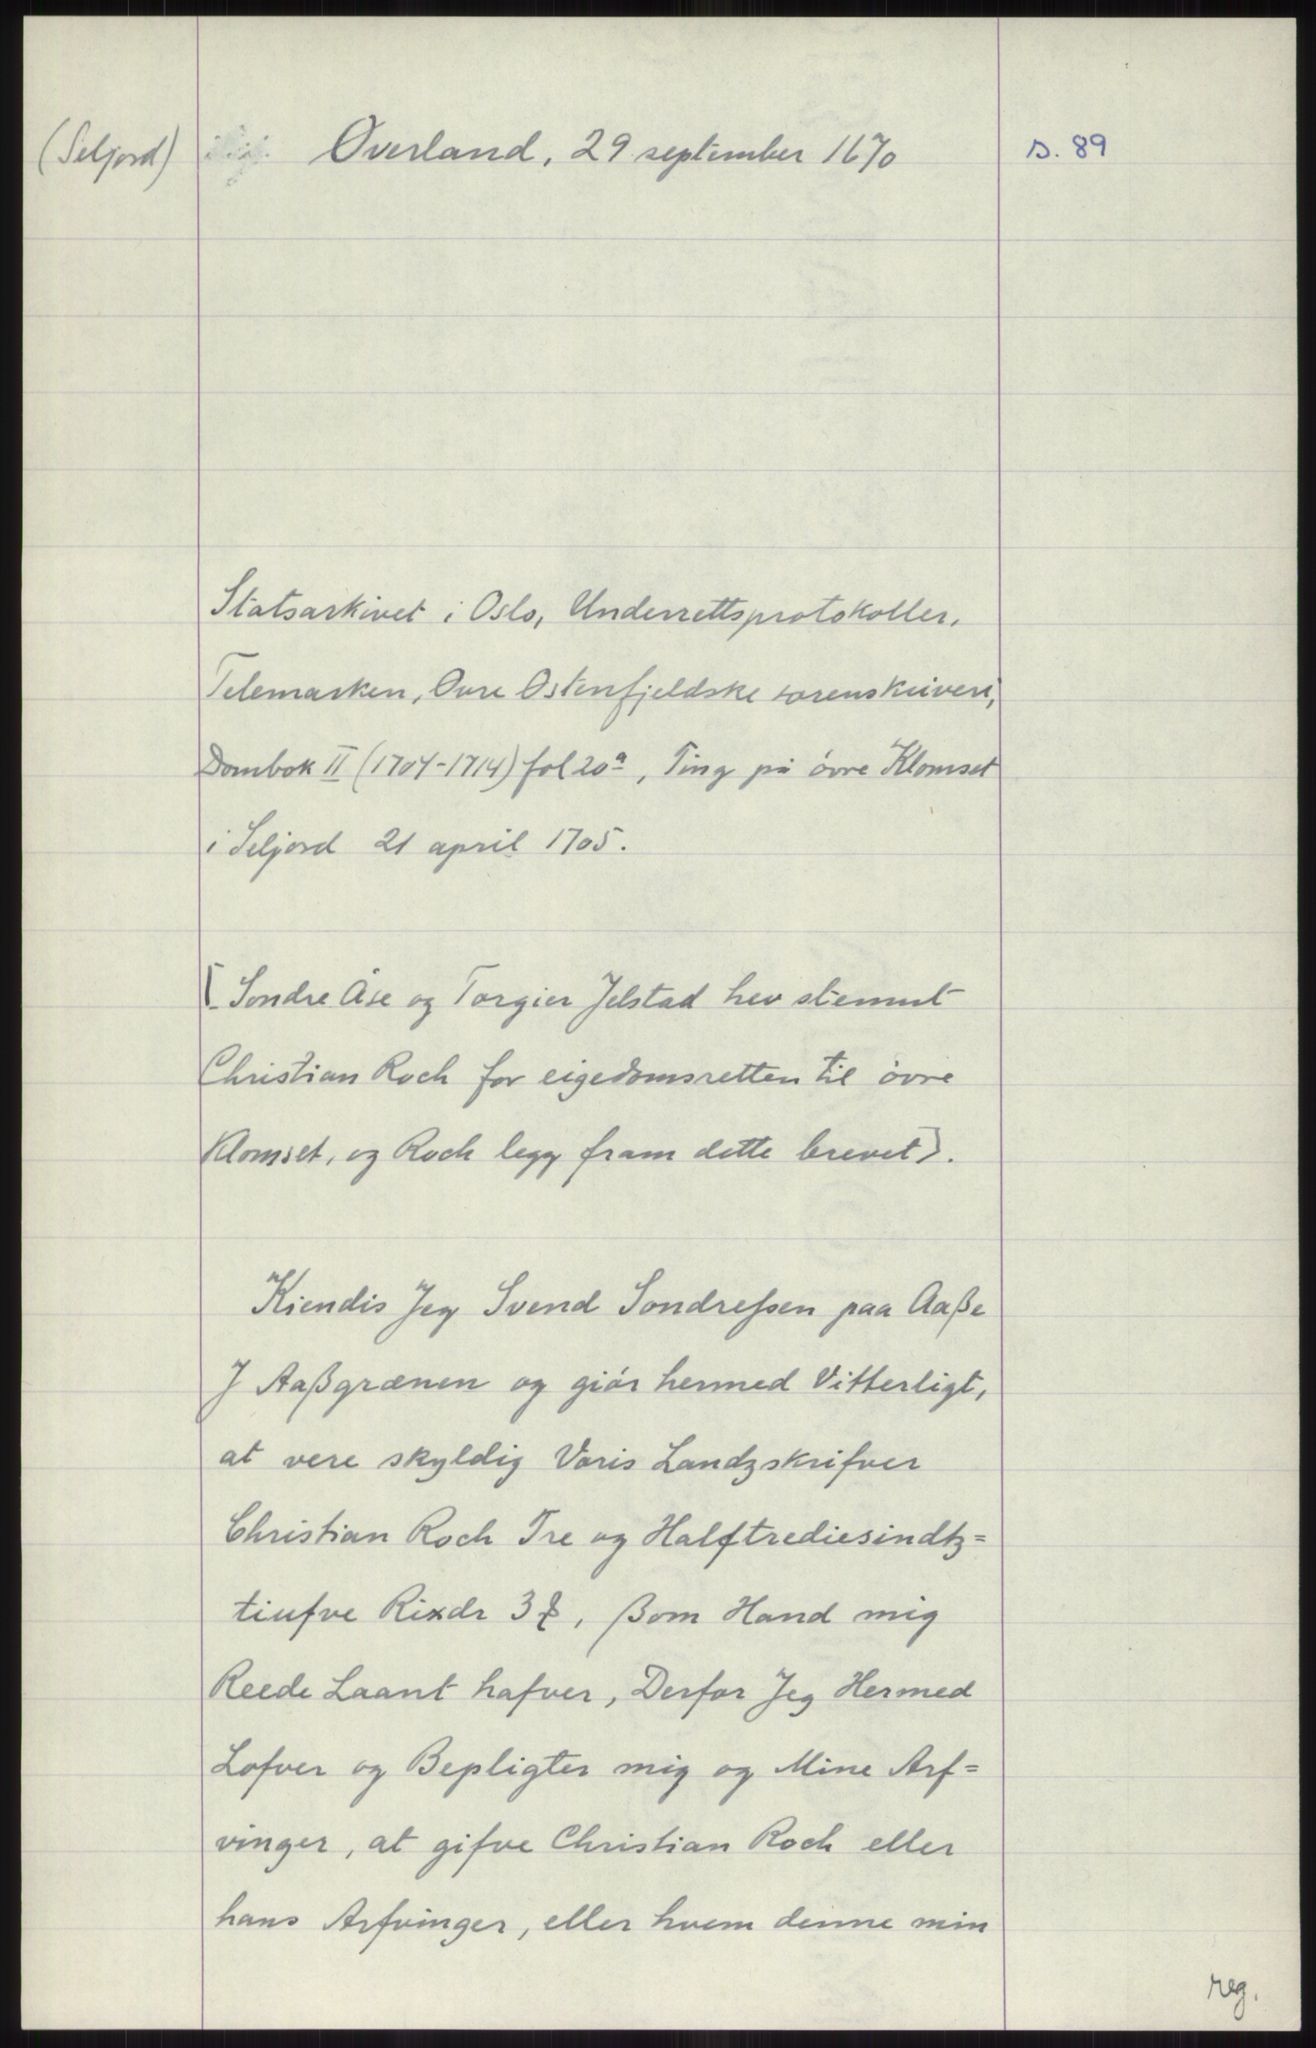 (Seljord) Överland, 29 september 1670 s. 89
Statsarkivet i Oslo, Underrettsprotokoller,
Telemarken, Övre Östenfjeldske sorenskriveri,
Dombok II (1704-1714) fol 20a, Ting på övre Klomset
i Seljord 21 april 1705.
[Sondre Åse og Torgier Jelstad hev stemnt
Christian Roch for eigedomsretten til övre
Klomset, og Roch legg fram dette brevet].
Kiendis Jeg Svend Sondreſsen paa Aaße
J Aaßgrænen og giör hermed Vitterligt,
at vere skyldig Voris Landzskrifver
Christian Roch Tre og Halftrediesindtz=
tiufve Rixdr 3 ꝑ, ßom Hand mig
Reede Laant hafver, Derfor Jeg Hermed
Lofver og Bepligter mig og Mine Arf=
vinger, at gifve Christian Roch eller
hans Arfvinger, eller hvem denne min
reg.